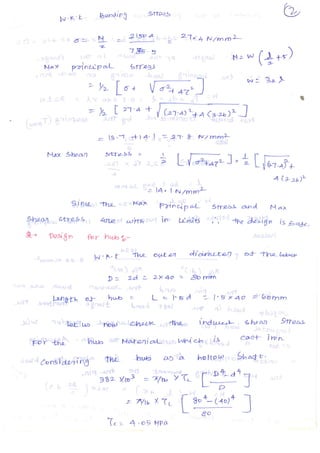 W.K.T Bending stress
σ = N/Z = 21584/788.5 = 27.4 N/mm²
N = W (l/2 + 5)
W = 3
Max principal stress
= 1/2 [ σ + √(σ² + 4τ²) ]
= 1/2 [ 27.4 + √((27.4)² + 4(3.26)²) ]
= 13.7 + 14.1 = 27.8 N/mm²
Max Shear stress = 1/2 [ √(σ² + 4τ²) ] = 1/2 [ √(27.4)² + 4(3.26)² ]
= 14.1 N/mm²
Since the Max Principal stress and Max
shear stress are with in Limits ∴ the design is safe
2. Design for hub :-
W.K.T The outer diameter of the hub
D = 2d = 2×40 = 80mm
Length of hub = L = 1.5d = 1.5×40 = 60mm
Let us now check the induced shear stress
For the hub Material which is cast Iron.
Considering The hub as a hollow Shaft.
382 ×10³ = π/16 × τc [ (D⁴ - d⁴)/D ]
= π/16 × τc [ (80⁴ - (40)⁴)/80 ]
τc = 4.05 MPa